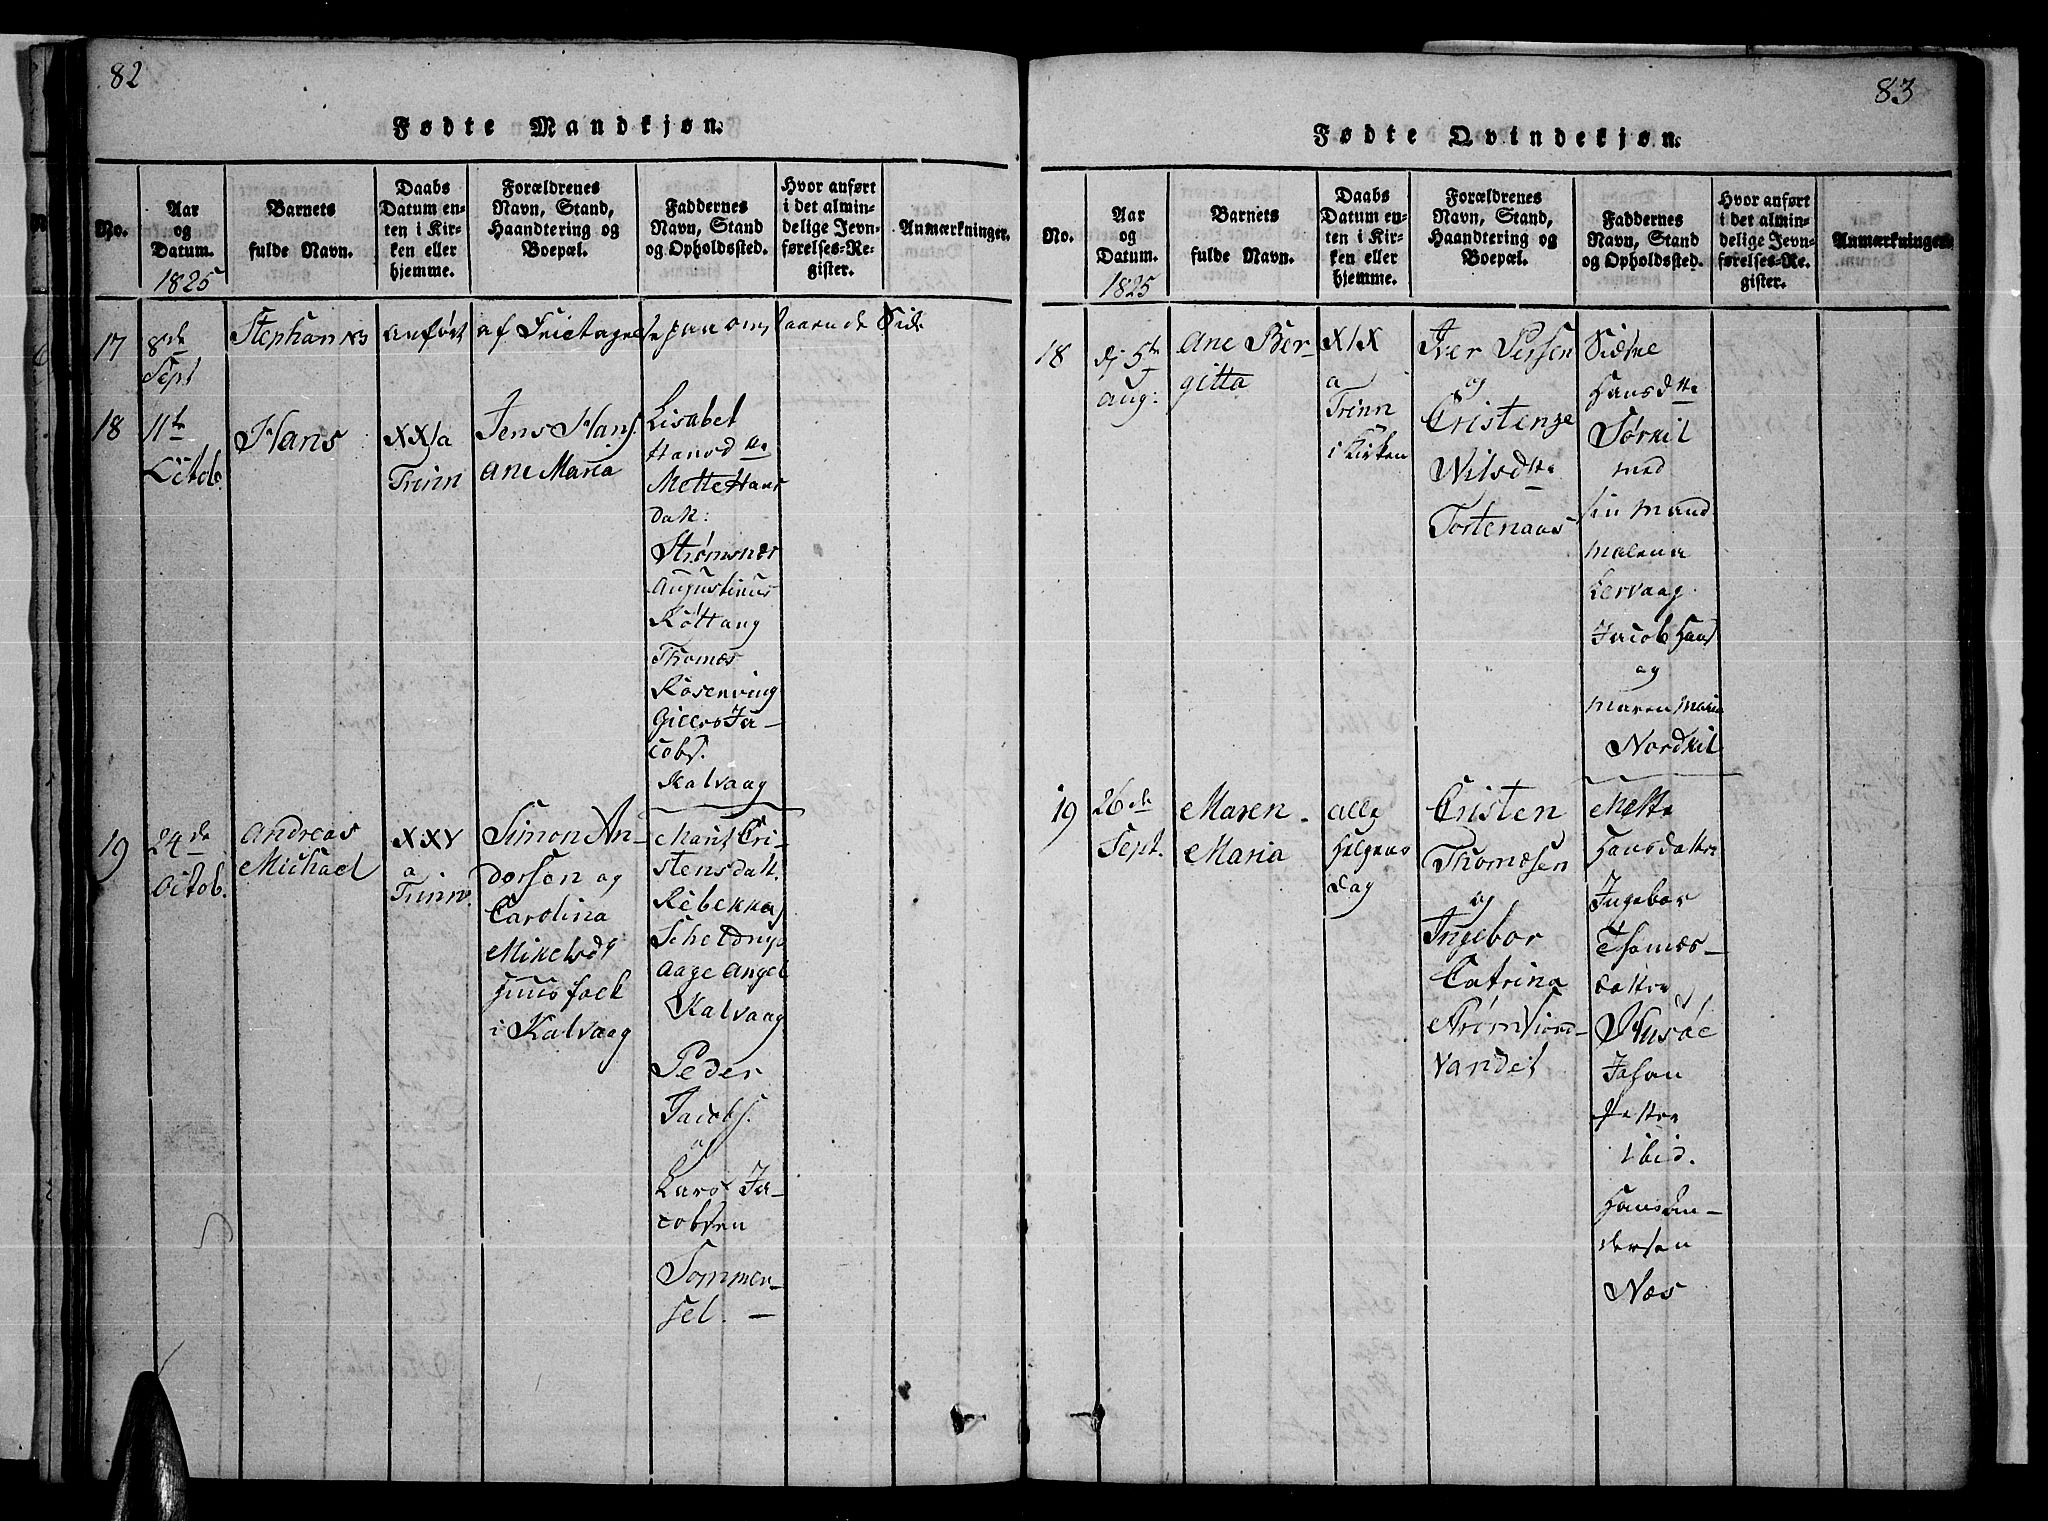 82
Fødte Mandkjøn.
No.
Aar
og
Datum.
1825
Barnets
fulde Navn.
Daabs
Datum en-
ten i Kir-
ken eller
hjemme.
Forældrenes
Navn, Stand,
Haandtering og
Boepæl.
Faddernes
Navn, Stand
og Opholdssted.
Hvor anført
i det almin-
delige Jevn-
førelses-Re-
gister.
Anmærkninger.
17
8de
Sept
Stephan
anført
af
paa
Side
18
11te
Octob.
Hans
XXI a
Trinn
Jens Hans
Ane Maria
Lisabet
Hansd
Mette Hans
Datt:
Strømsnæs
Augustinus
Røttang
Thomas
Rosenving
Ja-
cobs.
Kalvaag
19
24de
Octob.
Andreas
Michael
XXV
a
Trinn.
Simon An-
dersen og
Carolina
Mikelsd
Huusfolk
i Kalvaag
Marit Cri-
stensdatt.
Rebekka
Scheldrup
Aage Angel
Kalvaag
Peder
Jacobs.
og
Lars Ja-
cobsen
Sommer-
sel. —
83
Fødte Qvindekjøn.
No.
Aar
og
Datum.
1825
Barnets
fulde Navn.
Daabs
Datum en-
ten i Kir-
ken eller
hjemme.
Forældrenes
Navn, Stand,
Haandtering og
Boepæl.
Faddernes
Navn, Stand
og Opholdssted.
Hvor anført
i det almin-
delige Jevn-
førelses-Re-
gister.
Anmærkninger.
18
5te
Aug:
Ane Ber-
gitta
XIX
a
Trinn
i Kirken
Iver Persen
og
Cristense
Nilsdtte
Tortenaas
Hansdtte
Sørkil
med
sin Mand
Malena
Kervaag
Jacob Hans
og
Maren Maria
Nordkil
19
26de
Sept.
Maren
Maria
Alle
Helgens
Dag
Cristen
Thomæsen
og
Ingebor
Catrina
Strøm
Vandet
Mette
Hansdatter
Ingebor
Thomæs-
datter
Husøe
Johan
Petter
ibid.
Hans An-
dersen
Næs